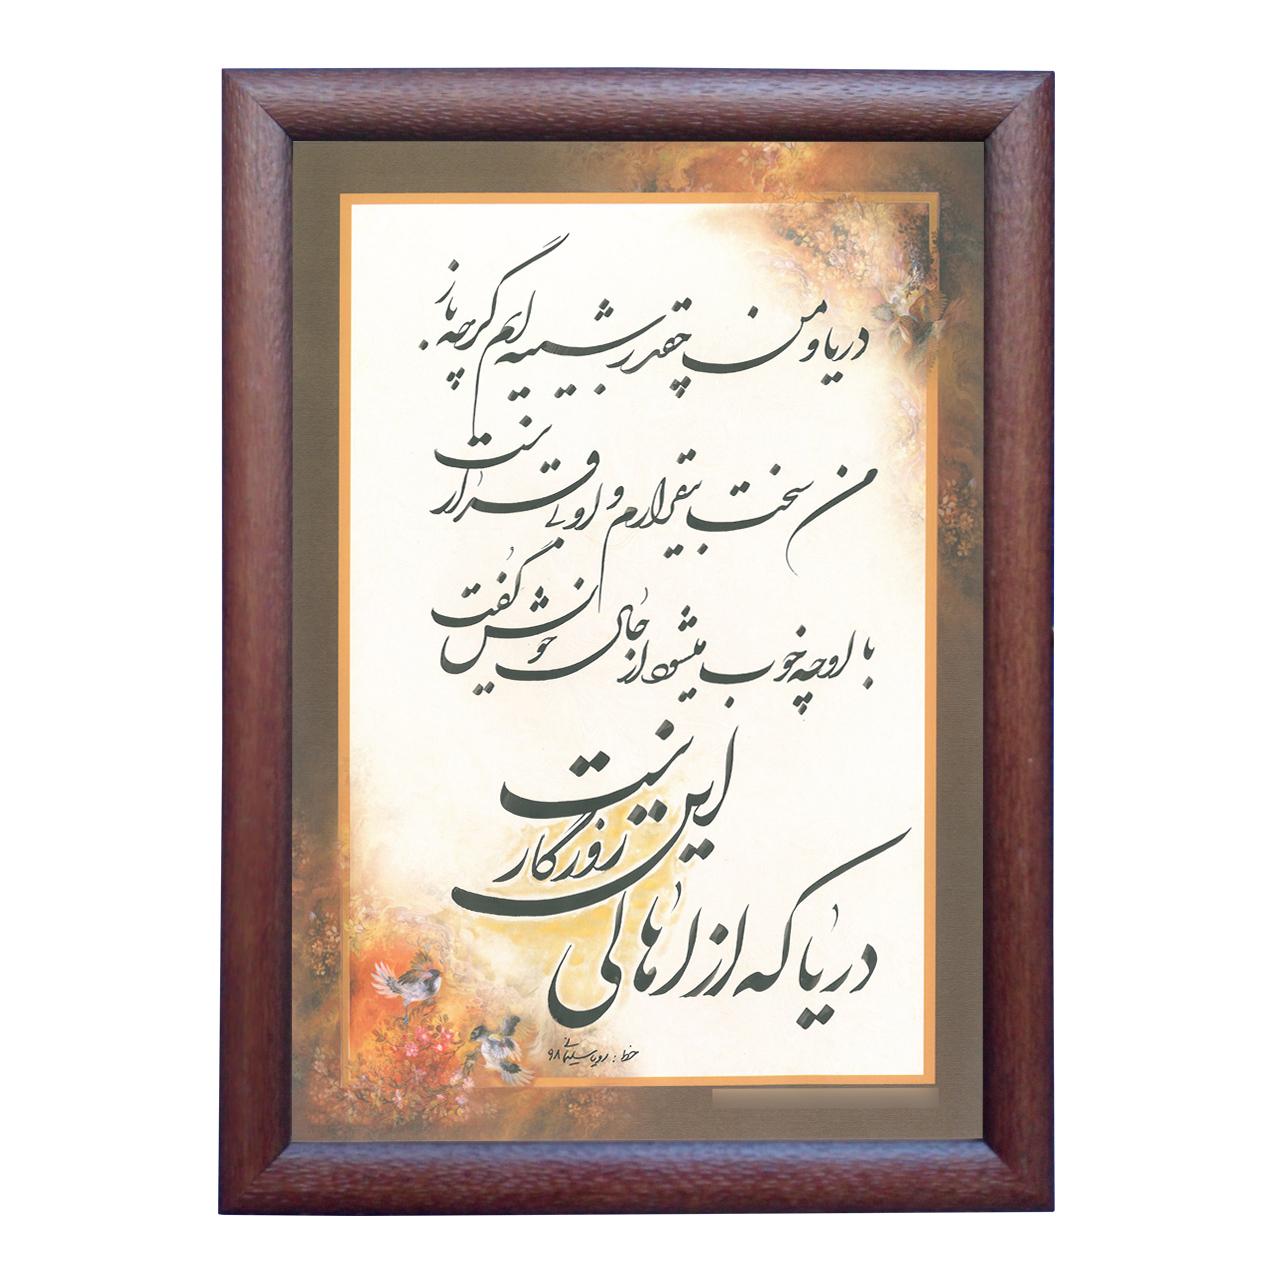 دریا و من چقدر شبیه ایم گرچه باز
من سخت بیقرارم و او بیقرار نیست
با او چه خوب میشود از حال خویش گفت
دریا که از اهالی این روزگار نیست
خط : رویا سلیمانی ۹۸